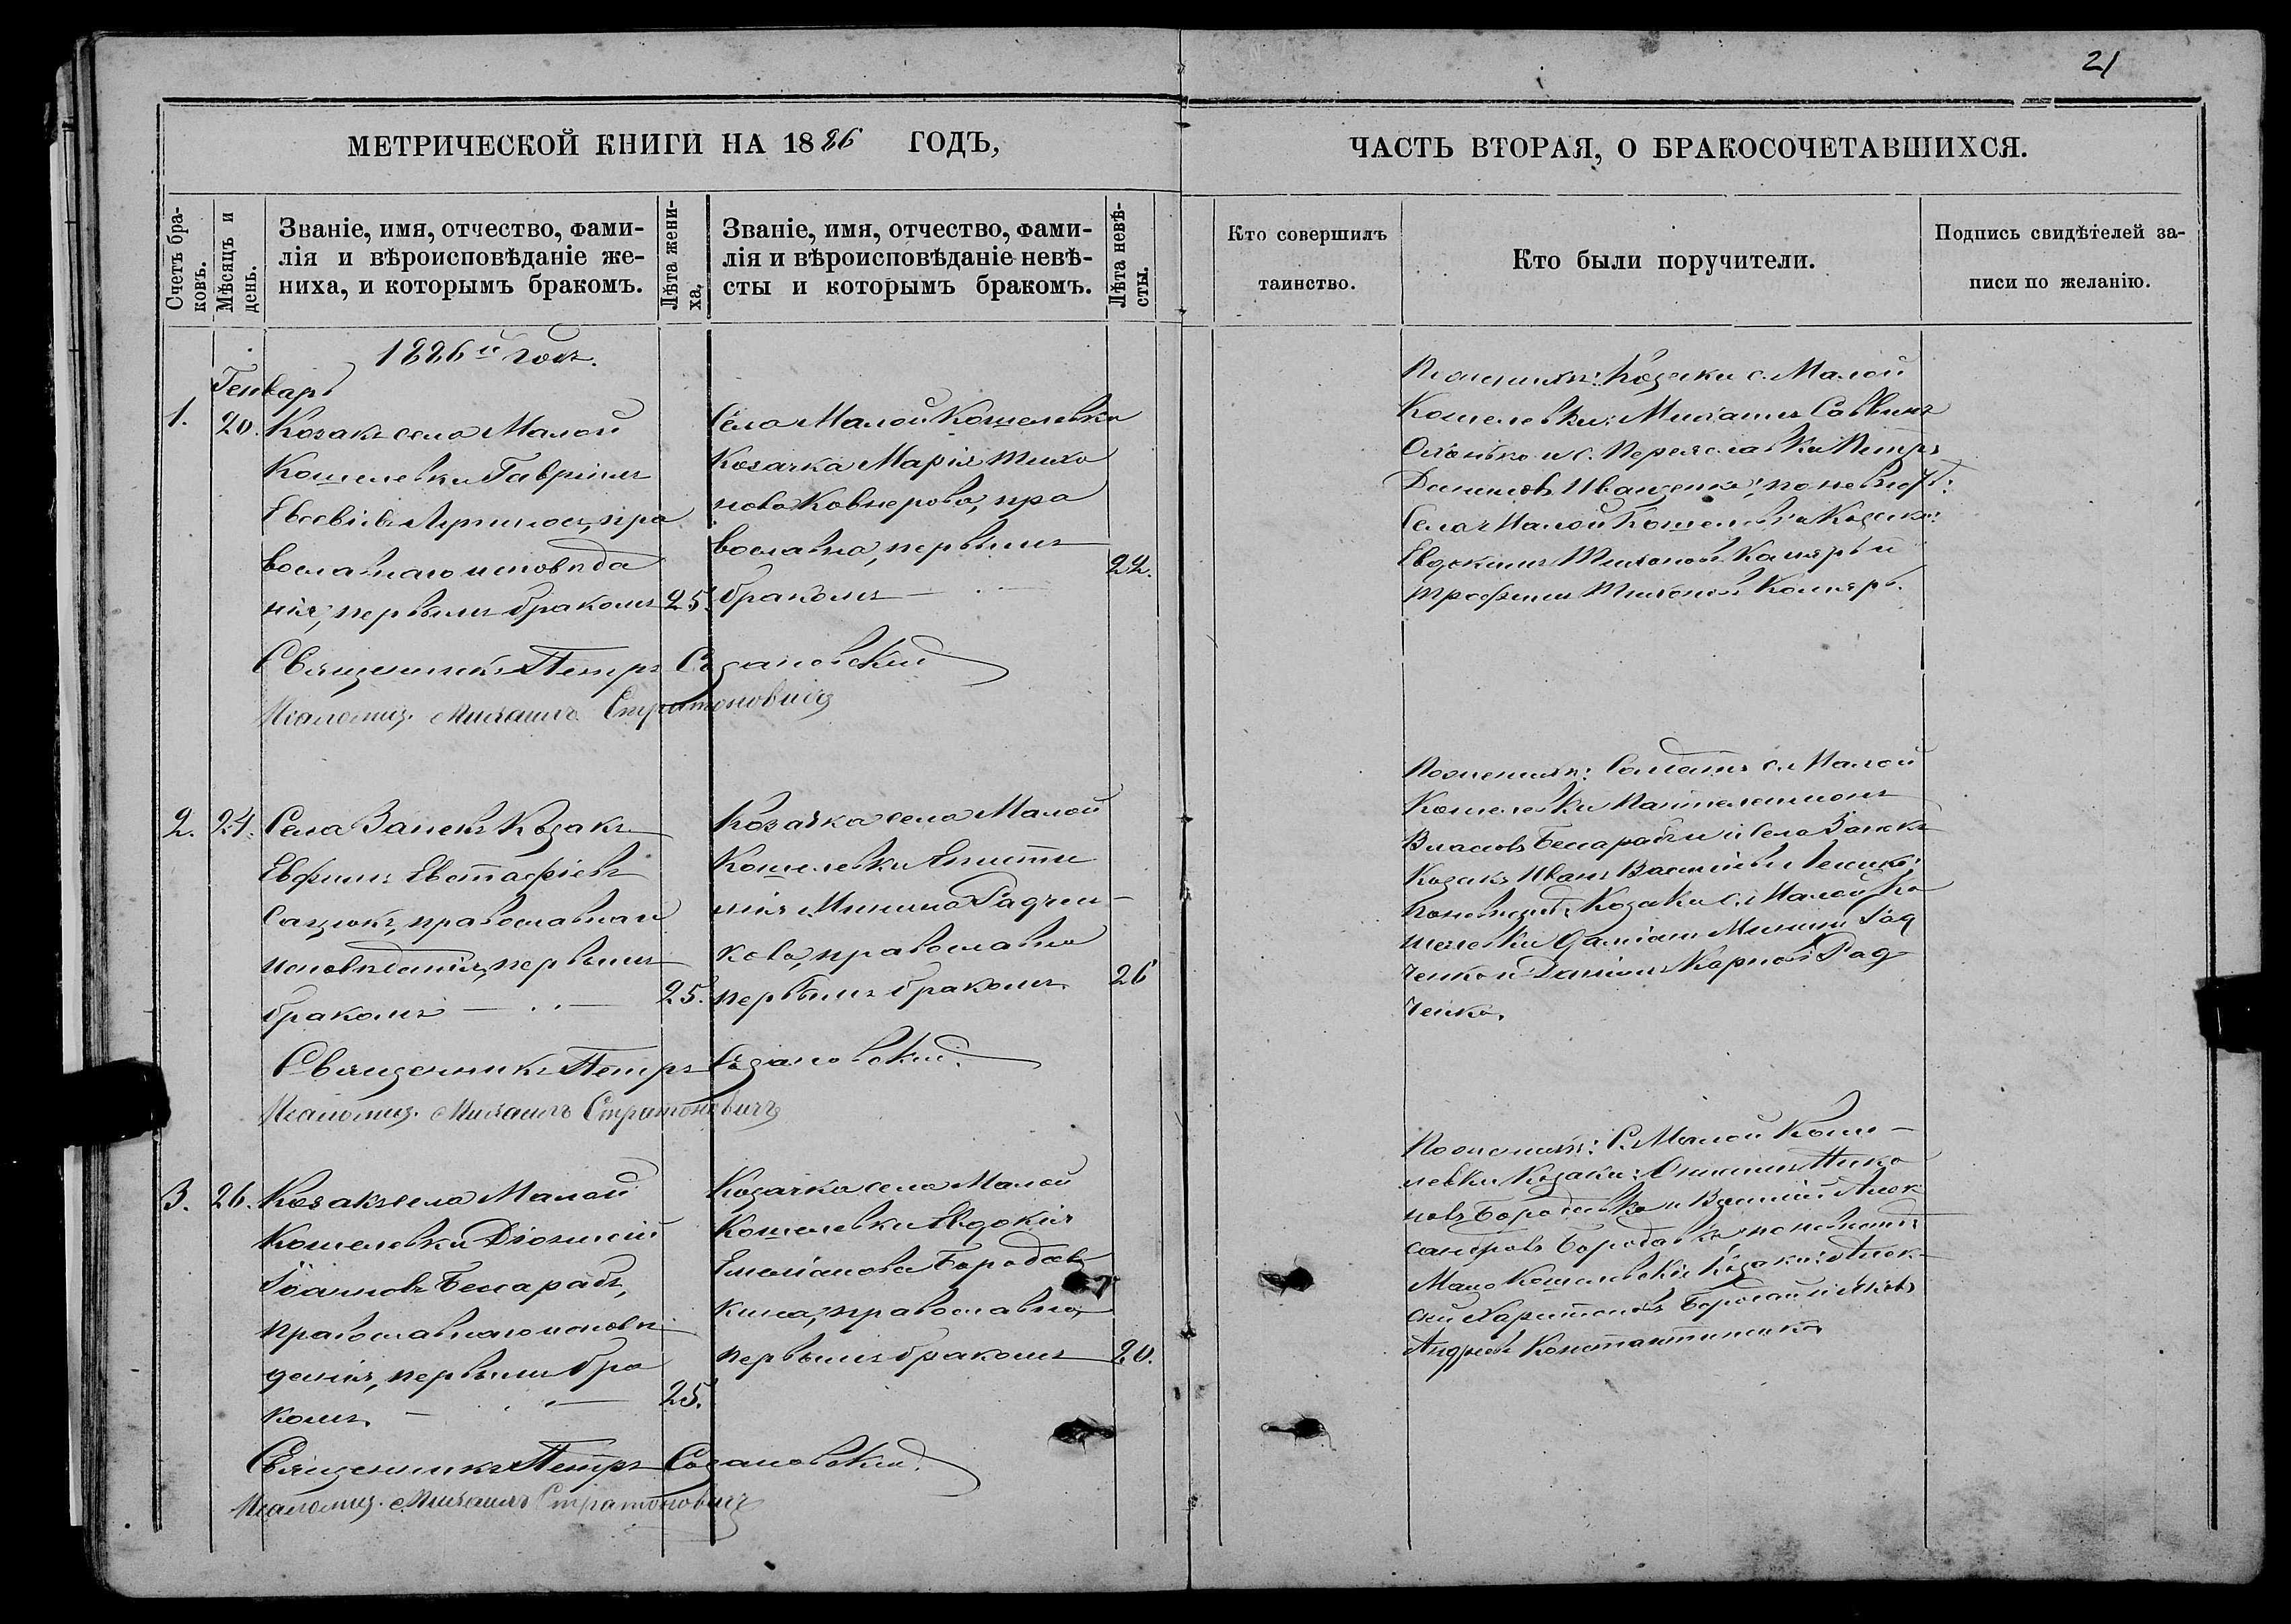 21
МЕТРИЧЕСКОЙ КНИГИ НА 1886 ГОДЪ,
ЧАСТЬ ВТОРАЯ, О БРАКОСОЧЕТАВШИХСЯ.
Счетъ бра-
ковъ.
Мѣсяцъ и
день.
Званіе, имя, отчество, фами-
лія и вѣроисповѣданіе же-
ниха, и которымъ бракомъ.
Лѣта жени-
ха.
Званіе, имя, отчество, фами-
лія и вѣроисповѣданіе невѣ-
сты и которымъ бракомъ.
Лѣта невѣ-
сты.
Кто совершилъ
таинство.
Кто были поручители.
Подпись свидѣтелей за-
писи по желанію.
1886й годъ.
Генварь
1.
20.
Козакъ села Малой
Кошелевки Гавріилъ
Евсевіевъ пра
вославнаго исповѣда
нія, первымъ бракомъ
25.
Села Малой Кошелевки
Козачка Марія Тихо
нова Ковнерова, пра
вославна, первымъ
бракомъ
22.
Козаки с. Малой
Кошелевки: Михаилъ Саввинъ
и с. Переяславки Петръ
Даниловъ Иващенко;
Села Малой Кошелевки Козаки:
Евдокимъ Тихоновъ и
Трофимъ Тихоновъ
Священникъ Петръ
Псаломщ. Михаилъ Стратоновичъ
2.
24.
Села Заньокъ Козакъ
Евфимъ Евстафіевъ
православнаго
исповѣданія, первымъ
бракомъ
25.
Козачка села Малой
Кошелевки
Минина Радчен-
кова, православна
первымъ бракомъ
26
Солдатъ с. Малой
Кошелевки Пантелеимонъ
Власовъ и села Заньокъ
Козакъ Иванъ Васильевъ
Козаки с. Малой Ко
шелевки Даміанъ Мининъ Рад
ченко и Даніилъ Карповъ Рад
ченко.
Священникъ Петръ
Псаломщ. Михаилъ Стратоновичъ
3.
26.
Козакъ села Малой
Кошелевки
Іоанновъ Бессарабъ,
православнаго исповѣ
данія, первымъ бра
комъ.
25.
Козачка села Малой
Кошелевки Евдокія
Емеліанова Бородав
кина, православна,
первымъ бракомъ
20.
С. Малой Коше-
левки Козаки:
новъ Бородавка и Василій Алек
сандровъ Бородавка
Мало Кошелевскіе Козаки: Алек-
сѣй Харитоновъ и Яковъ
Андреевъ Константиненко
Священникъ Петръ
Псаломщ. Михаилъ Стратоновичъ